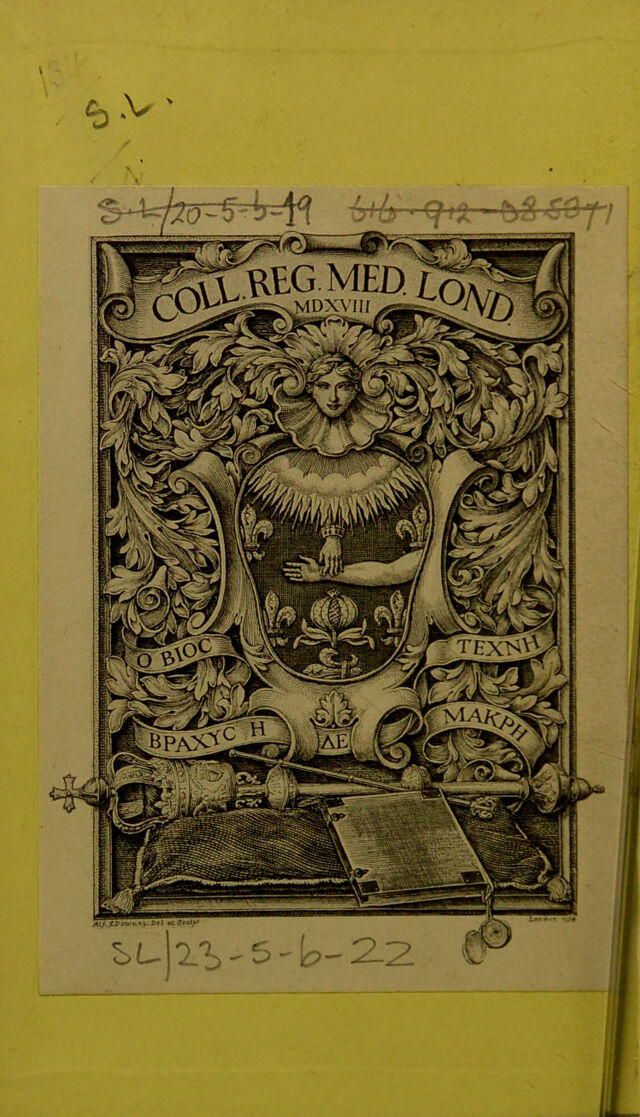 134
S.L.
S-L/20-5-b-19 616.912-085371
COLL. REG. MED. LOND.
MDXVIII
Ο ΒΙΟC ΤΕΧΝΗ
ΒΡΑΧΥC Η ΔΕ ΜΑΚΡΗ
Alf. J. Downey. Del et Sculpt London
SL/23-5-6-22